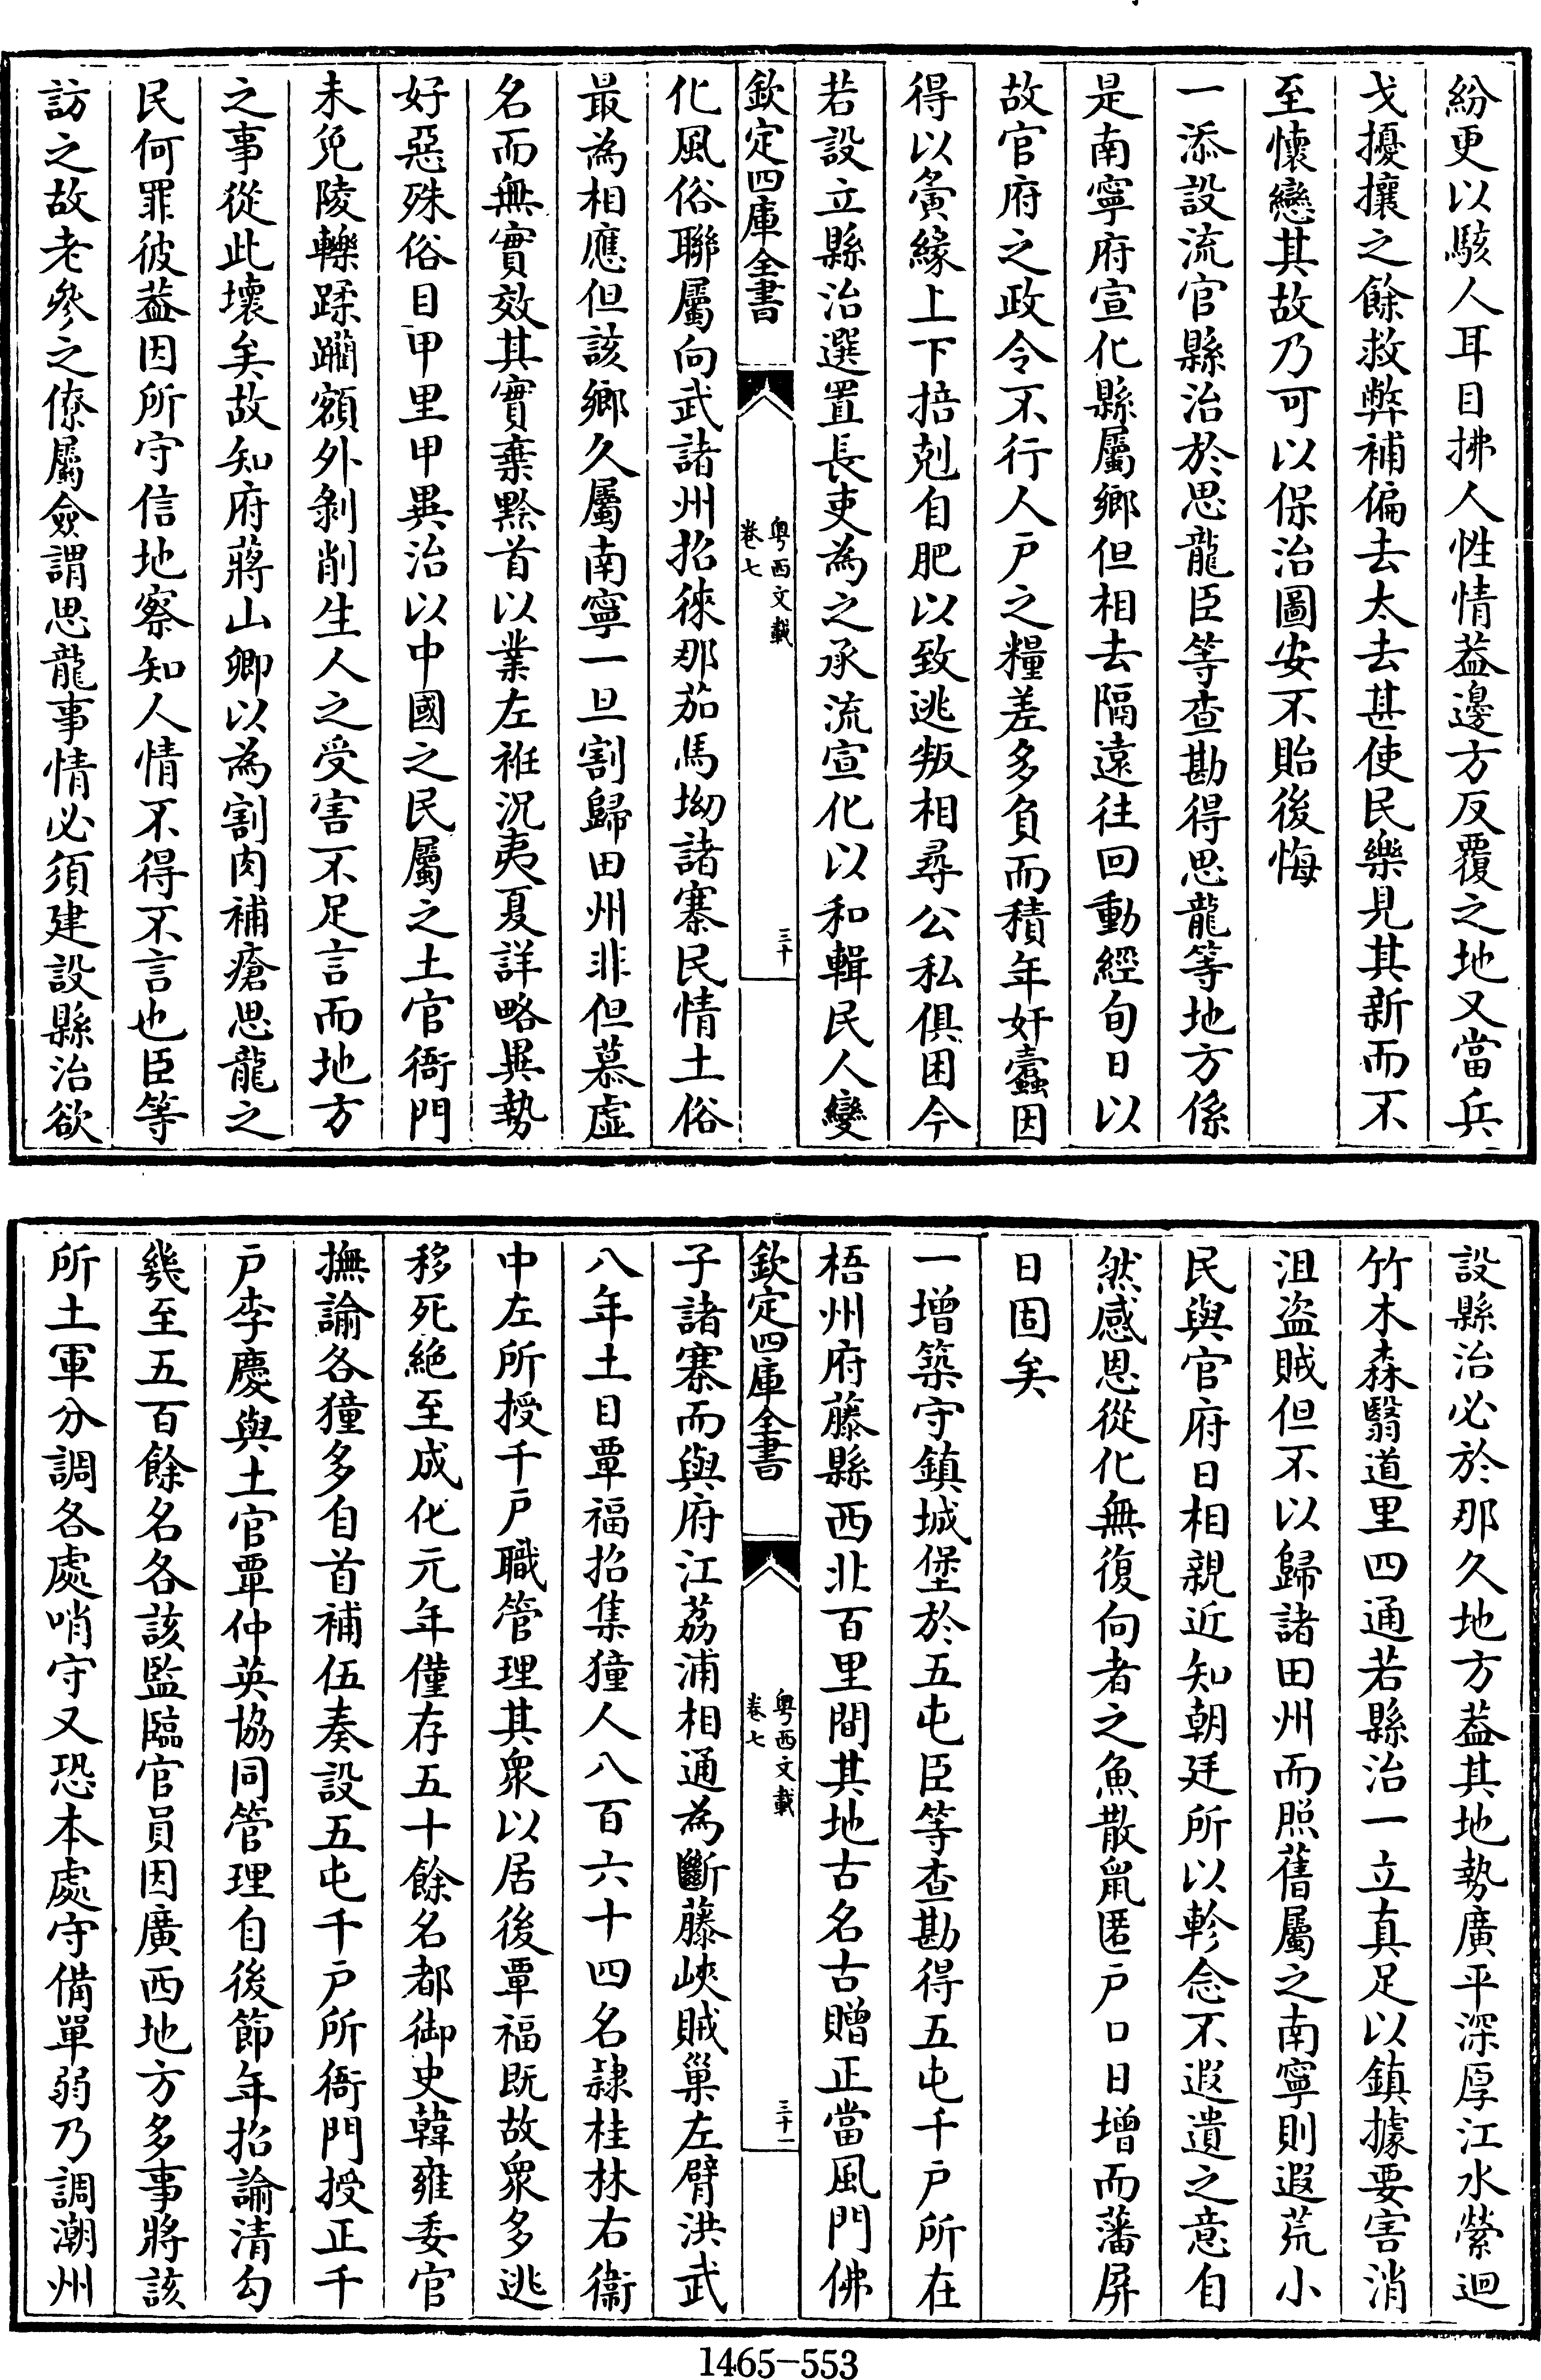 紛更以駭人耳目拂人性情葢邊方反覆之地又當兵
戈擾攘之餘救弊補偏去太去甚使民樂見其新而不
至懷戀其故乃可以保治圖安不貽後悔
一添設流官縣治於思龍臣等查勘得思龍等地方係
是南寧府宣化縣屬鄉但相去隔遠往回動經旬日以
故官府之政令不行人戶之糧差多負而積年奸蠧因
得以夤緣上下掊剋自肥以致逃叛相尋公私俱困今
若設立縣治選置長吏為之承流宣化以和輯民人變
欽定四庫全書
粵西文載
卷七
三十
化風俗聯屬向武諸州招徠那茄馬坳諸寨民情土俗
最為相應但該鄉久屬南寧一旦割歸田州非但慕虛
名而無實效其實棄黔首以業左袵沉夷夏詳略異勢
好惡殊俗目甲里甲異治以中國之民屬之土官衙門
未免陵轢蹂躪額外剝削生人之受害不足言而地方
之事從此壞矣故知府蔣山卿以為割肉補瘡思龍之
民何罪彼葢因所守信地察知人情不得不言也臣等
訪之故老參之僚屬僉謂思龍事情必須建設縣治欲
設縣治必於那久地方葢其地勢廣平深厚江水縈迴
竹木森翳道里四通若縣治一立真足以鎮據要害消
沮盜賊但不以歸諸田州而照舊屬之南寧則遐荒小
民與官府日相親近知朝廷所以軫念不遐遺之意自
然感恩從化無復向者之魚散鼠匿戶口日增而藩屏
日固矣
一增築守鎮城堡於五屯臣等查勘得五屯千戶所在
梧州府藤縣西北百里間其地古名古贈正當風門佛
欽定四庫全書
粵西文載
卷七
三十一
子諸寨而與府江荔浦相通為斷藤峽賊巢左臂洪武
八年土目覃福招集獞人八百六十四名隷桂林右衞
中左所授千戶職管理其衆以居後覃福既故衆多逃
移死絶至成化元年僅存五十餘名都御史韓雍委官
撫諭各獞多自首補伍奏設五屯千戶所衙門授正千
戶李慶與土官覃仲英協同管理自後節年招諭清勾
幾至五百餘名各該監臨官員因廣西地方多事將該
所土軍分調各處哨守又恐本處守備單弱乃調潮州
1465-553